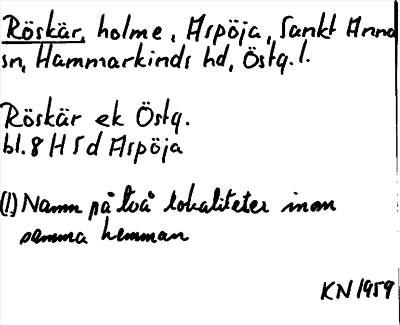 Röskär, holme, Aspöja, Sankt Anna
sn, Hammarkinds hd, Östg. l.
Röskär ek Östg.
bl. 8 H 5 d Aspöja
(1) Namn på två lokaliteter inom
samma hemman
KN 1959